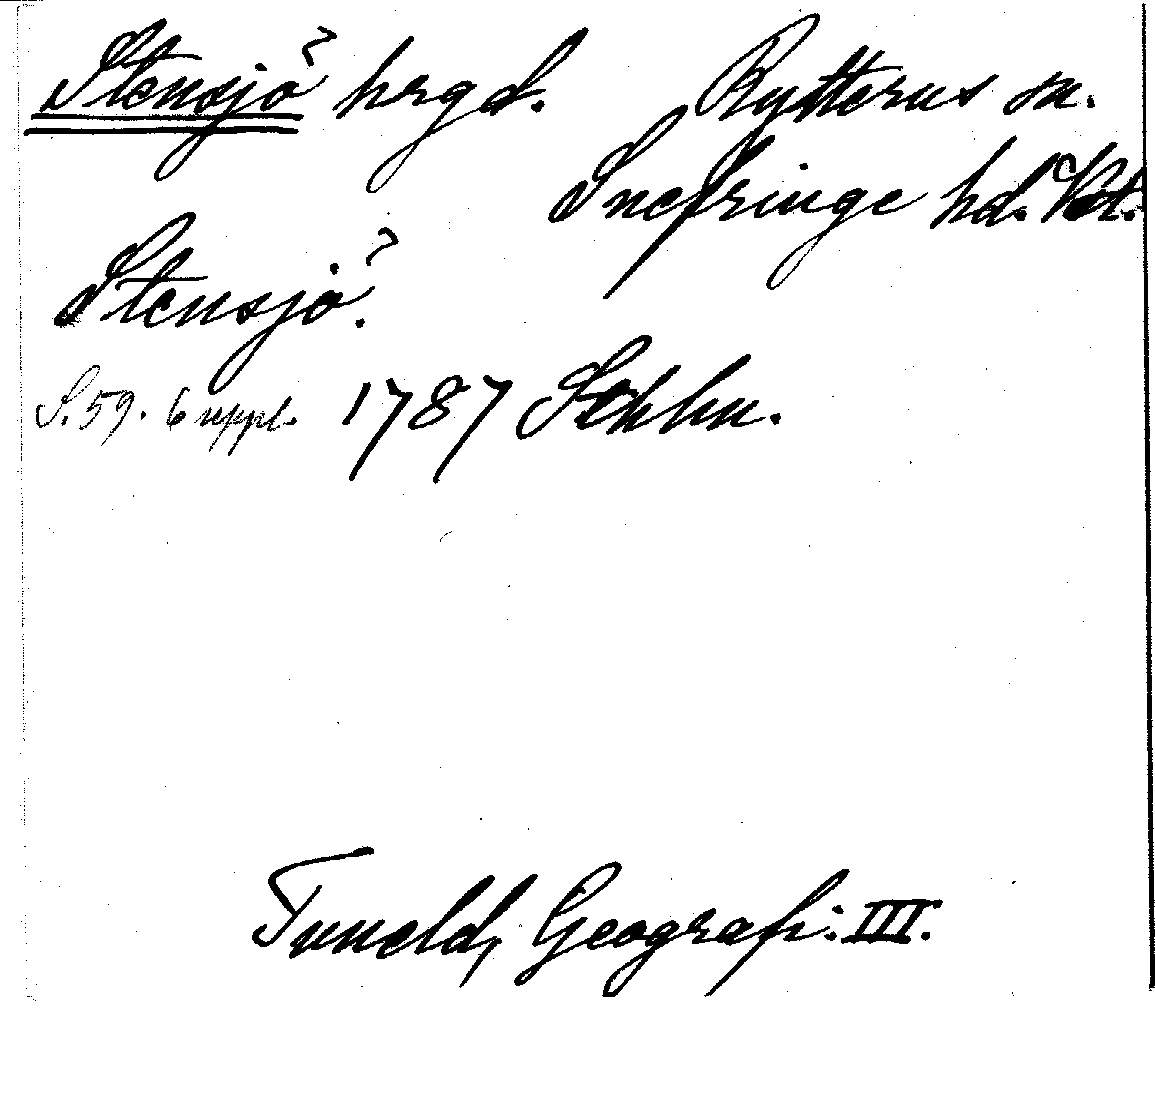 Stensjö? hrgd. Rytterns sn.
Snefringe hd. Vstl.
Stensjö?.
S. 59. 6 uppl. 1787 Sthlm.
Tuneld, Geografi. III.